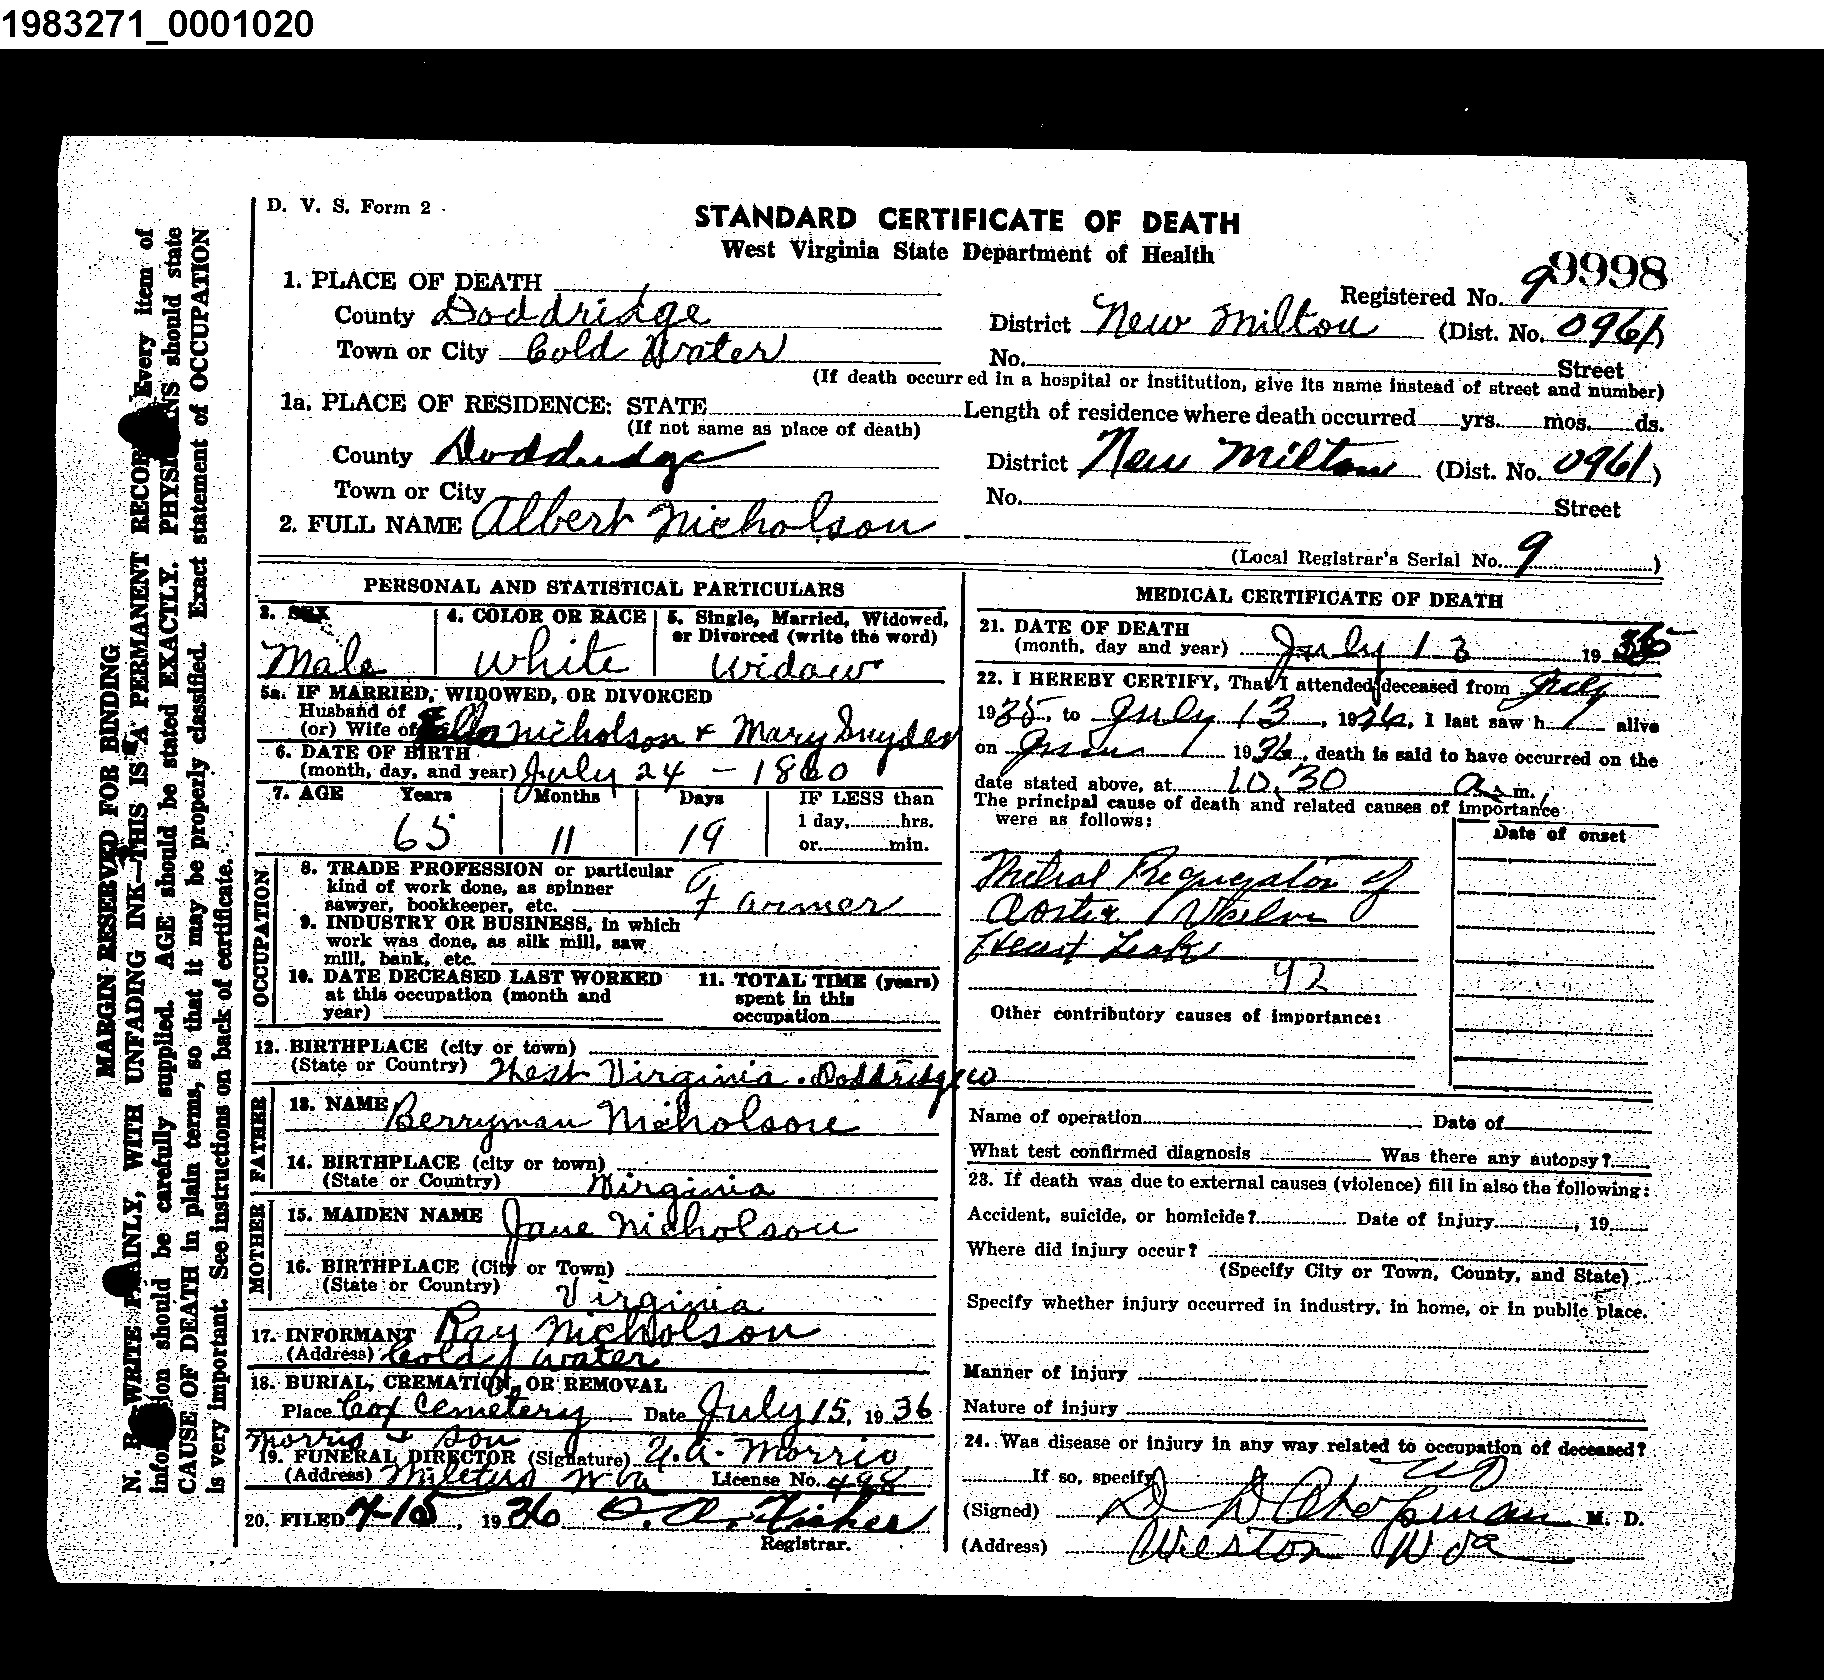 1983271_0001020
D. V. S. Form 2
STANDARD CERTIFICATE OF DEATH
West Virginia State Department of Health
9998
1. PLACE OF DEATH
Registered No. 9
County Doddridge
District New Milton (Dist. No. 0961)
Town or City Cold Water
No. Street
(If death occurred in a hospital or institution, give its name instead of street and number)
1a. PLACE OF RESIDENCE: STATE Length of residence where death occurred yrs. mos. ds.
(If not same as place of death)
County Doddridge
District New Milton (Dist. No. 0961)
Town or City
No. Street
2. FULL NAME Albert Nicholson
(Local Registrar's Serial No. 9 )
PERSONAL AND STATISTICAL PARTICULARS
3. SEX
Male
4. COLOR OR RACE
White
5. Single, Married, Widowed,
or Divorced (write the word)
Widow
5a. IF MARRIED, WIDOWED, OR DIVORCED
Husband of
(or) Wife of Nicholson + Mary Snyder
6. DATE OF BIRTH
(month, day, and year) July 24 - 18
7. AGE Years Months Days
65 11 19
IF LESS than
1 day, hrs.
or min.
OCCUPATION
8. TRADE PROFESSION or particular
kind of work done, as spinner
sawyer, bookkeeper, etc. Farmer
9. INDUSTRY OR BUSINESS, in which
work was done, as silk mill, saw
mill, bank, etc.
10. DATE DECEASED LAST WORKED
at this occupation (month and
year)
11. TOTAL TIME (years)
spent in this
occupation
12. BIRTHPLACE (city or town)
(State or Country) West Virginia. Doddridge co
FATHER
13. NAME Berryman Nicholson
14. BIRTHPLACE (city or town)
(State or Country) Virginia
MOTHER
15. MAIDEN NAME Jane Nicholson
16. BIRTHPLACE (City or Town)
(State or Country) Virginia
17. INFORMANT Ray Nicholson
(Address) Cold water
18. BURIAL, CREMATION, OR REMOVAL
Place Cox Cemetery Date July 15, 1936
Morris + Son
19. FUNERAL DIRECTOR (Signature) Morris
(Address) W Va License No. 498
20. FILED 7-15, 1936 O. A. Fisher
Registrar.
MEDICAL CERTIFICATE OF DEATH
21. DATE OF DEATH
(month, day and year) July 13 19
22. I HEREBY CERTIFY, That I attended deceased from July
1935, to July 13, 1936, I last saw h alive
on 1936, death is said to have occurred on the
date stated above, at 10.30 a.m.
The principal cause of death and related causes of importance
were as follows:
Date of onset
Mitral of
Heart Leak
92
Other contributory causes of importance:
Name of operation Date of
What test confirmed diagnosis Was there any autopsy?
23. If death was due to external causes (violence) fill in also the following:
Accident, suicide, or homicide? Date of injury , 19
Where did injury occur?
(Specify City or Town, County, and State)
Specify whether injury occurred in industry, in home, or in public place.
Manner of injury
Nature of injury
24. Was disease or injury in any way related to occupation of deceased?
If so, specify
(Signed) D D Chapman M. D.
(Address) Weston W Va
MARGIN RESERVED FOR BINDING
N. B. WRITE PLAINLY, WITH UNFADING INK—THIS IS A PERMANENT RECORD Every item of
information should be carefully supplied. AGE should be stated EXACTLY. PHYSICIANS should state
CAUSE OF DEATH in plain terms, so that it may be properly classified. Exact statement of OCCUPATION
is very important. See instructions on back of certificate.